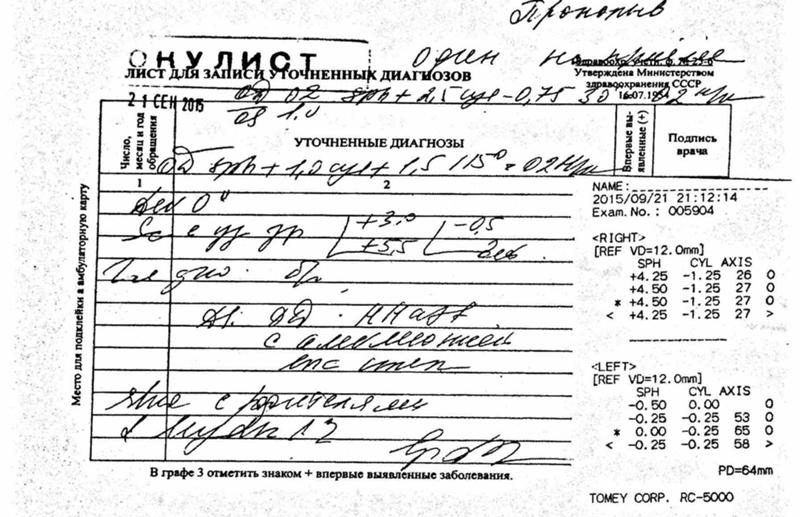 Прокопьв
ОКУЛИСТ
один на приеме
ЛИСТ ДЛЯ ЗАПИСИ УТОЧНЕННЫХ ДИАГНОЗОВ
Здравоохр. учетн. ф. № 25-б
Утверждена Министерством
здравоохранения СССР
16.07.1954
21 СЕН 2015
OD 02 sph + 2,5 cyl - 0,75 30 02 н/к
OS 1.0
Число, месяц и год обращения
УТОЧНЕННЫЕ ДИАГНОЗЫ
Впервые выявленные (+)
Подпись врача
OD sph + 1,0 cyl + 1,5 115° = 02 н/к
1
2
Место для подклейки в амбулаторную карту
0°
+3,0 -0,5
+5,5
Гл дно
Ds. OD
с амблиопией
с родителями
В графе 3 отметить знаком + впервые выявленные заболевания.
NAME:
2015/09/21 21:12:14
Exam.No.: 005904
<RIGHT>
[REF VD=12.0mm]
SPH CYL AXIS
+4.25 -1.25 26 O
+4.50 -1.25 27 O
* +4.50 -1.25 27 O
< +4.25 -1.25 27 >
<LEFT>
[REF VD=12.0mm]
SPH CYL AXIS
-0.50 0.00 O
-0.25 -0.25 53 O
* 0.00 -0.25 65 O
< -0.25 -0.25 58 >
PD=64mm
TOMEY CORP. RC-5000